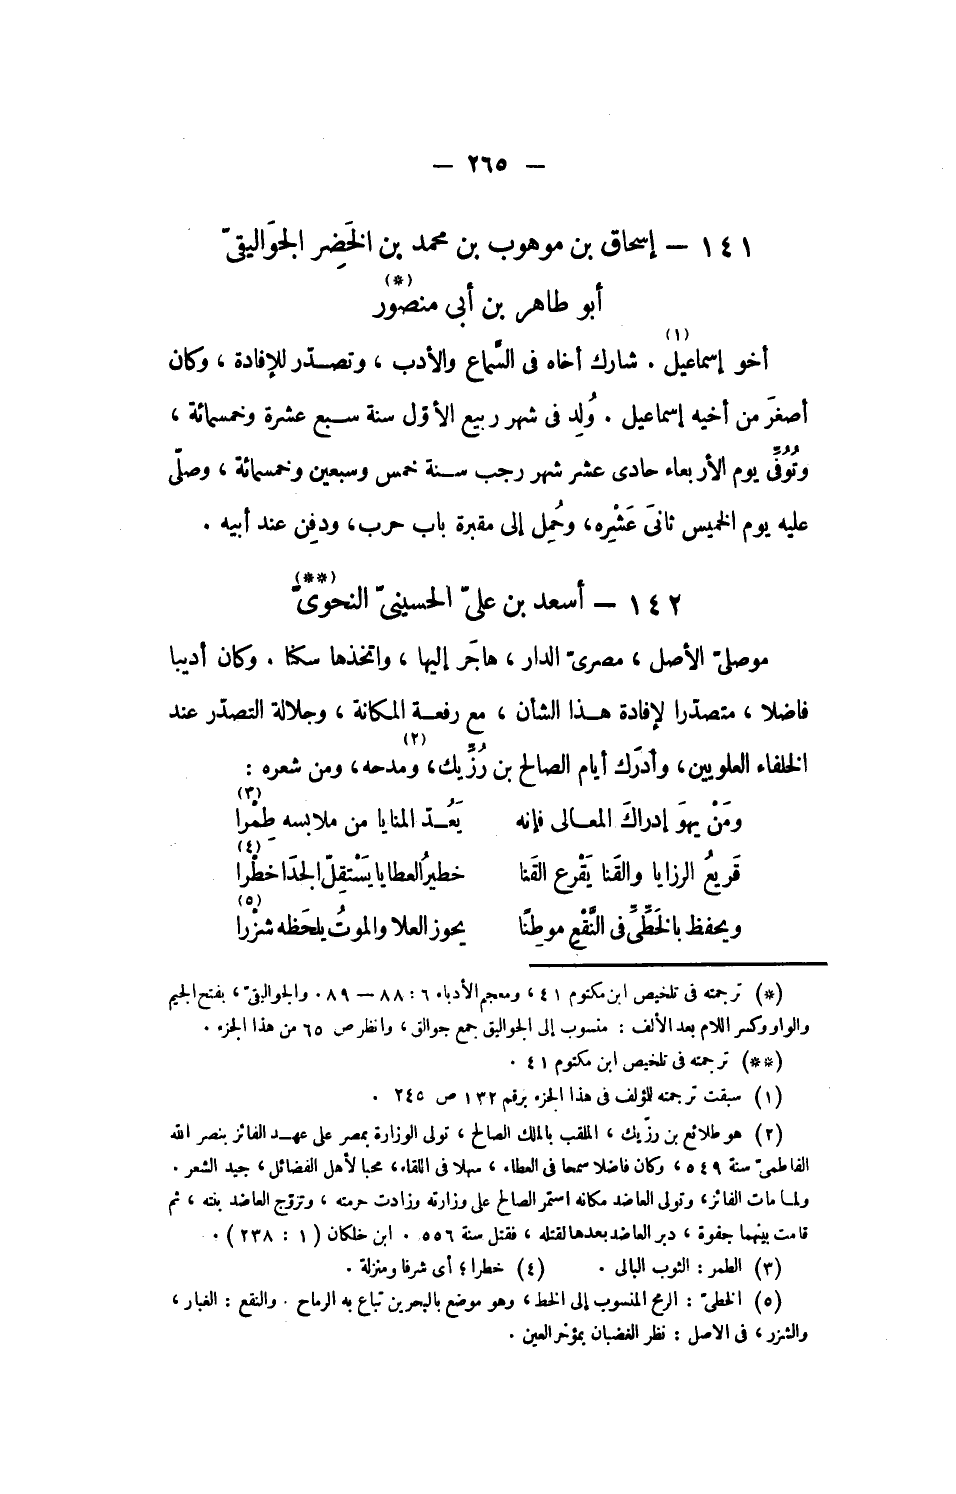 — ٢٦٥ —
١٤١ — إسحاق بن موهوب بن محمد بن الخَضِر الجوَاليقىّ
أبو طاهر بن أبى منصور (*)
أخو إسماعيل (١) . شارك أخاه فى السَّماع والأدب ، وتصدّر للإفادة ، وكان
أصغرَ من أخيه إسماعيل . وُلِد فى شهر ربيع الأوّل سنة سبع عشرة وخمسمائة ،
وتُوُفِّىَ يوم الأربعاء حادى عشر شهر رجب سنة خمس وسبعين وخمسمائة ، وصلّى
عليه يوم الخميس ثانىَ عَشْرِه، وحُمِل إلى مقبرة باب حرب، ودفِن عند أبيه .
١٤٢ — أسعد بن علىّ الحسينىّ النحوىّ (**)
موصلىّ الأصل ، مصرىّ الدار ، هاجَر إليها ، واتخذها سكنا . وكان أديبا
فاضلا ، متصدّرا لإفادة هذا الشأن ، مع رفعة المكانة ، وجلالة التصدّر عند
الخلفاء العلويين، وأدرَك أيام الصالح بن رُزِّيك (٢)، ومدحه، ومن شعره :
ومَنْ يهوَ إدراكَ المعالى فإنه يَعُدّ المنايا من ملابسه طِمْرا (٣)
قَريعُ الرزايا والقَنا يَقْرع القَنا خطيرُ العطايا يَسْتقِلّ الجَدَا خطْرا (٤)
ويحفظ بالخَطِّىِّ فى النَّقْعِ موطِنًا يحوز العلا والموتُ يلحَظه شزْرا (٥)
(*) ترجمته فى تلخيص ابن مكتوم ٤١ ، ومعجم الأدباء ٦ : ٨٨ — ٨٩ . والجواليقىّ ، بفتح الجيم
والواو وكسر اللام بعد الألف : منسوب إلى الجواليق جمع جوالق ، وانظر ص ٦٥ من هذا الجزء .
(**) ترجمته فى تلخيص ابن مكتوم ٤١ .
(١) سبقت ترجمته للؤلف فى هذا الجزء برقم ١٣٢ ص ٢٤٥ .
(٢) هو طلائع بن رزّيك ، الملقب بالملك الصالح ، تولى الوزارة بمصر على عهد الفائز بنصر الله
الفاطمىّ سنة ٥٤٩ ، وكان فاضلا سمحا فى العطاء ، سهلا فى اللقاء، محبا لأهل الفضائل ، جيد الشعر .
ولما مات الفائز، وتولى العاضد مكانه استمر الصالح على وزارته وزادت حرمته ، وتزوّج العاضد بنته ، ثم
قامت بينهما جفوة ، دبر العاضد بعدها لقتله ، فقتل سنة ٥٥٦ . ابن خلكان ( ١ : ٢٣٨ ) .
(٣) الطمر : الثوب البالى . (٤) خطرا ؛ أى شرفا ومنزلة .
(٥) الخطىّ : الرمح المنسوب إلى الخط ، وهو موضع بالبحرين تباع به الرماح . والنقع : الغبار ،
والشزر ، فى الاصل : نظر الغضبان بمؤخر العين .